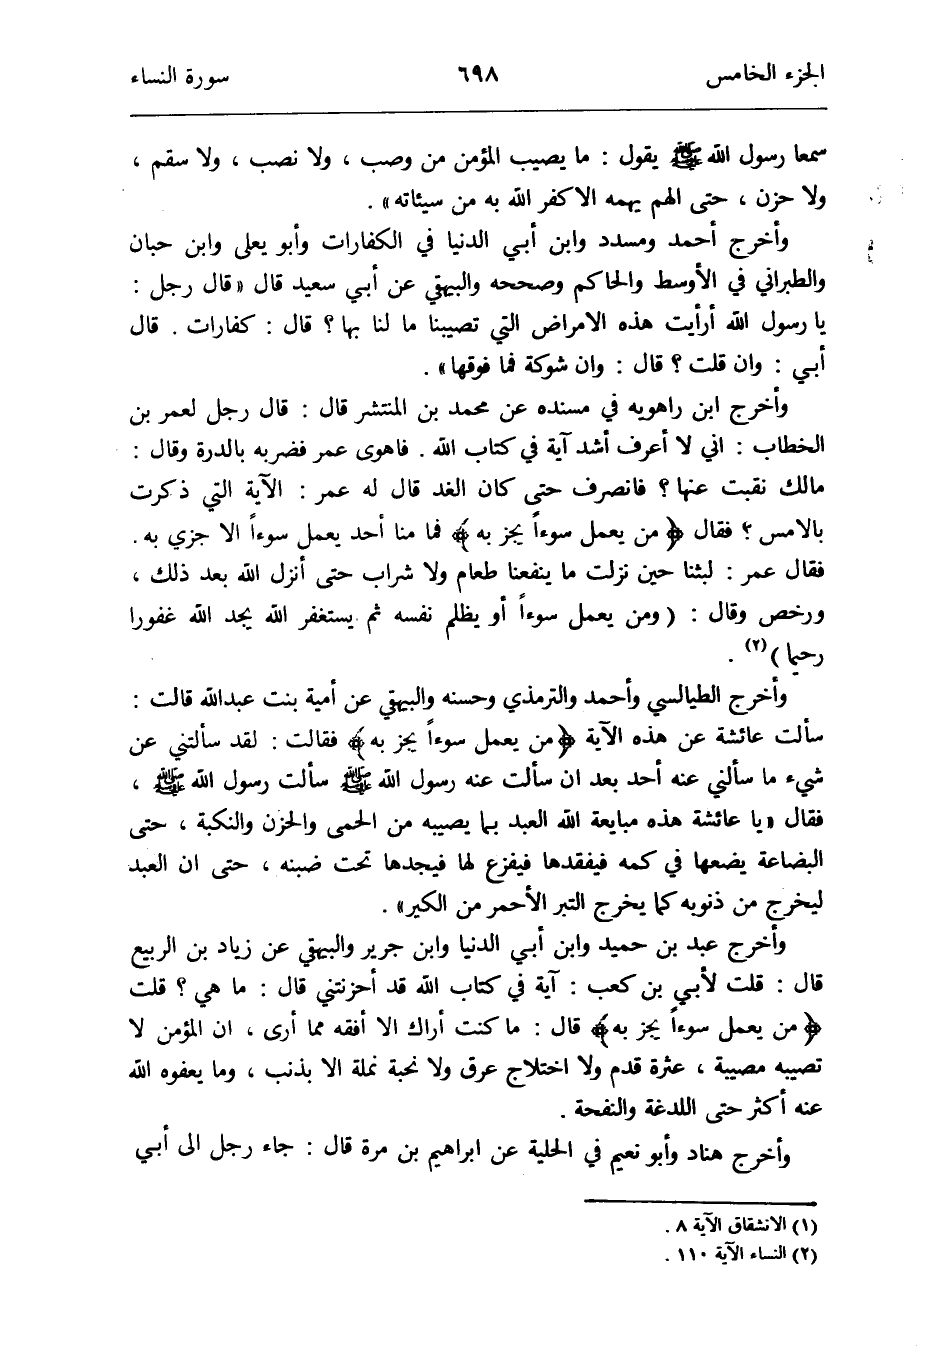 الجزء الخامس ٦٩٨ سورة النساء
سمعا رسول الله ﷺ يقول : ما يصيب المؤمن من وصب ، ولا نصب ، ولا سقم ،
ولا حزن ، حتى الهم يهمه الاكفر الله به من سيئاته» .
وأخرج أحمد ومسدد وابن أبي الدنيا في الكفارات وأبو يعلى وابن حبان
والطبراني في الأوسط والحاكم وصححه والبيهقي عن أبي سعيد قال «قال رجل :
يا رسول الله أرأيت هذه الامراض التي تصيبنا ما لنا بها ؟ قال : كفارات . قال
أبي : وان قلت ؟ قال : وان شوكة فما فوقها» .
وأخرج ابن راهويه في مسنده عن محمد بن المنتشر قال : قال رجل لعمر بن
الخطاب : اني لا أعرف أشد آية في كتاب الله . فاهوى عمر فضربه بالدرة وقال :
مالك نقبت عنها ؟ فانصرف حتى كان الغد قال له عمر : الآية التي ذكرت
بالامس ؟ فقال ﴿ من يعمل سوءاً يجز به ﴾ فما منا أحد يعمل سوءاً الا جزي به .
فقال عمر : لبثنا حين نزلت ما ينفعنا طعام ولا شراب حتى أنزل الله بعد ذلك ،
ورخص وقال : ( ومن يعمل سوءاً أو يظلم نفسه ثم يستغفر الله يجد الله غفورا
رحيما ) (٢) .
وأخرج الطيالسي وأحمد والترمذي وحسنه والبيهقي عن أمية بنت عبدالله قالت :
سألت عائشة عن هذه الآية ﴿ من يعمل سوءاً يجز به ﴾ فقالت : لقد سألتني عن
شيء ما سألني عنه أحد بعد ان سألت عنه رسول الله ﷺ سألت رسول الله ﷺ ،
فقال «يا عائشة هذه مبايعة الله العبد بما يصيبه من الحمى والحزن والنكبة ، حتى
البضاعة يضعها في كمه فيفقدها فيفزع لها فيجدها تحت ضبنه ، حتى ان العبد
ليخرج من ذنوبه كما يخرج التبر الأحمر من الكير» .
وأخرج عبد بن حميد وابن أبي الدنيا وابن جرير والبيهقي عن زياد بن الربيع
قال : قلت لأبي بن كعب : آية في كتاب الله قد أحزنتني قال : ما هي ؟ قلت
﴿ من يعمل سوءاً يجز به ﴾ قال : ما كنت أراك الا أفقه مما أرى ، ان المؤمن لا
تصيبه مصيبة ، عثرة قدم ولا اختلاج عرق ولا نحبة نملة الا بذنب ، وما يعفوه الله
عنه أكثر حتى اللدغة والنفحة .
وأخرج هناد وأبو نعيم في الحلية عن ابراهيم بن مرة قال : جاء رجل الى أبي
(١) الانشقاق الآية ٨ .
(٢) النساء الآية ١١٠ .